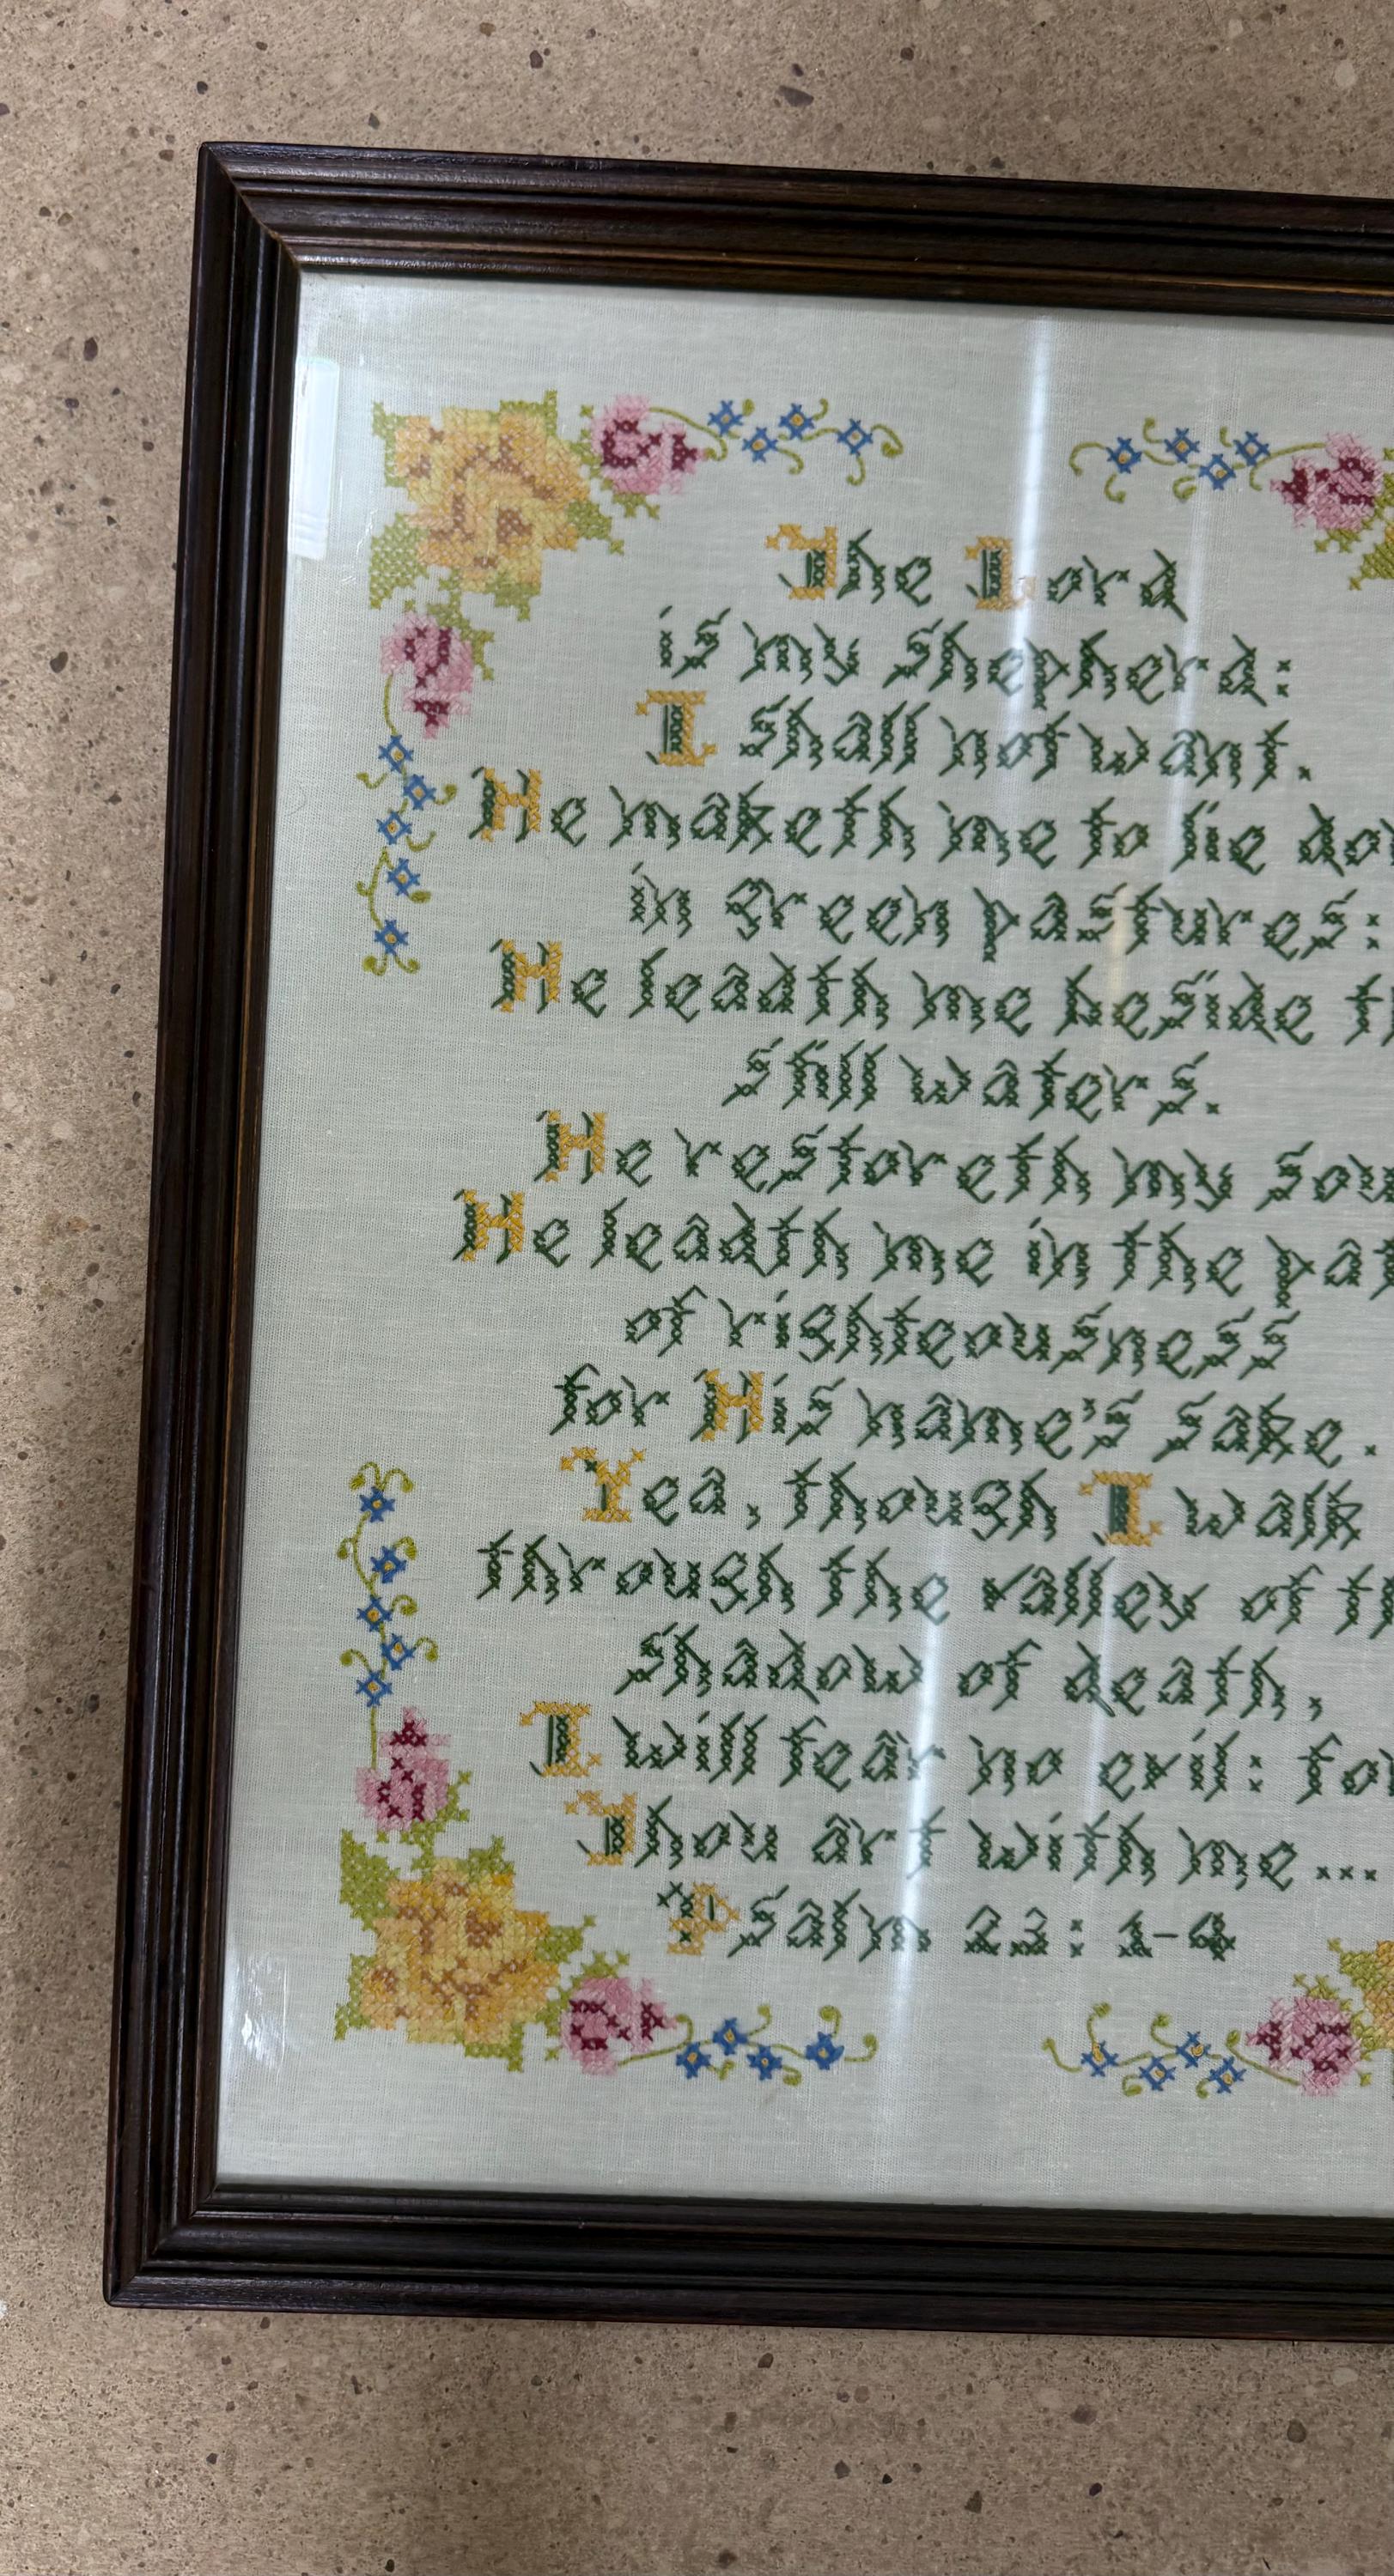 The Lord
is my shepherd:
I shall not want.
He maketh me to lie do
in green pastures:
He leadth me beside th
still waters.
He restoreth my sou
He leadth me in the pat
of righteousness
for His name's sake.
Yea, though I walk
through the valley of th
shadow of death,
I will fear no evil: for
Thou art with me...
Psalm 23: 1-4